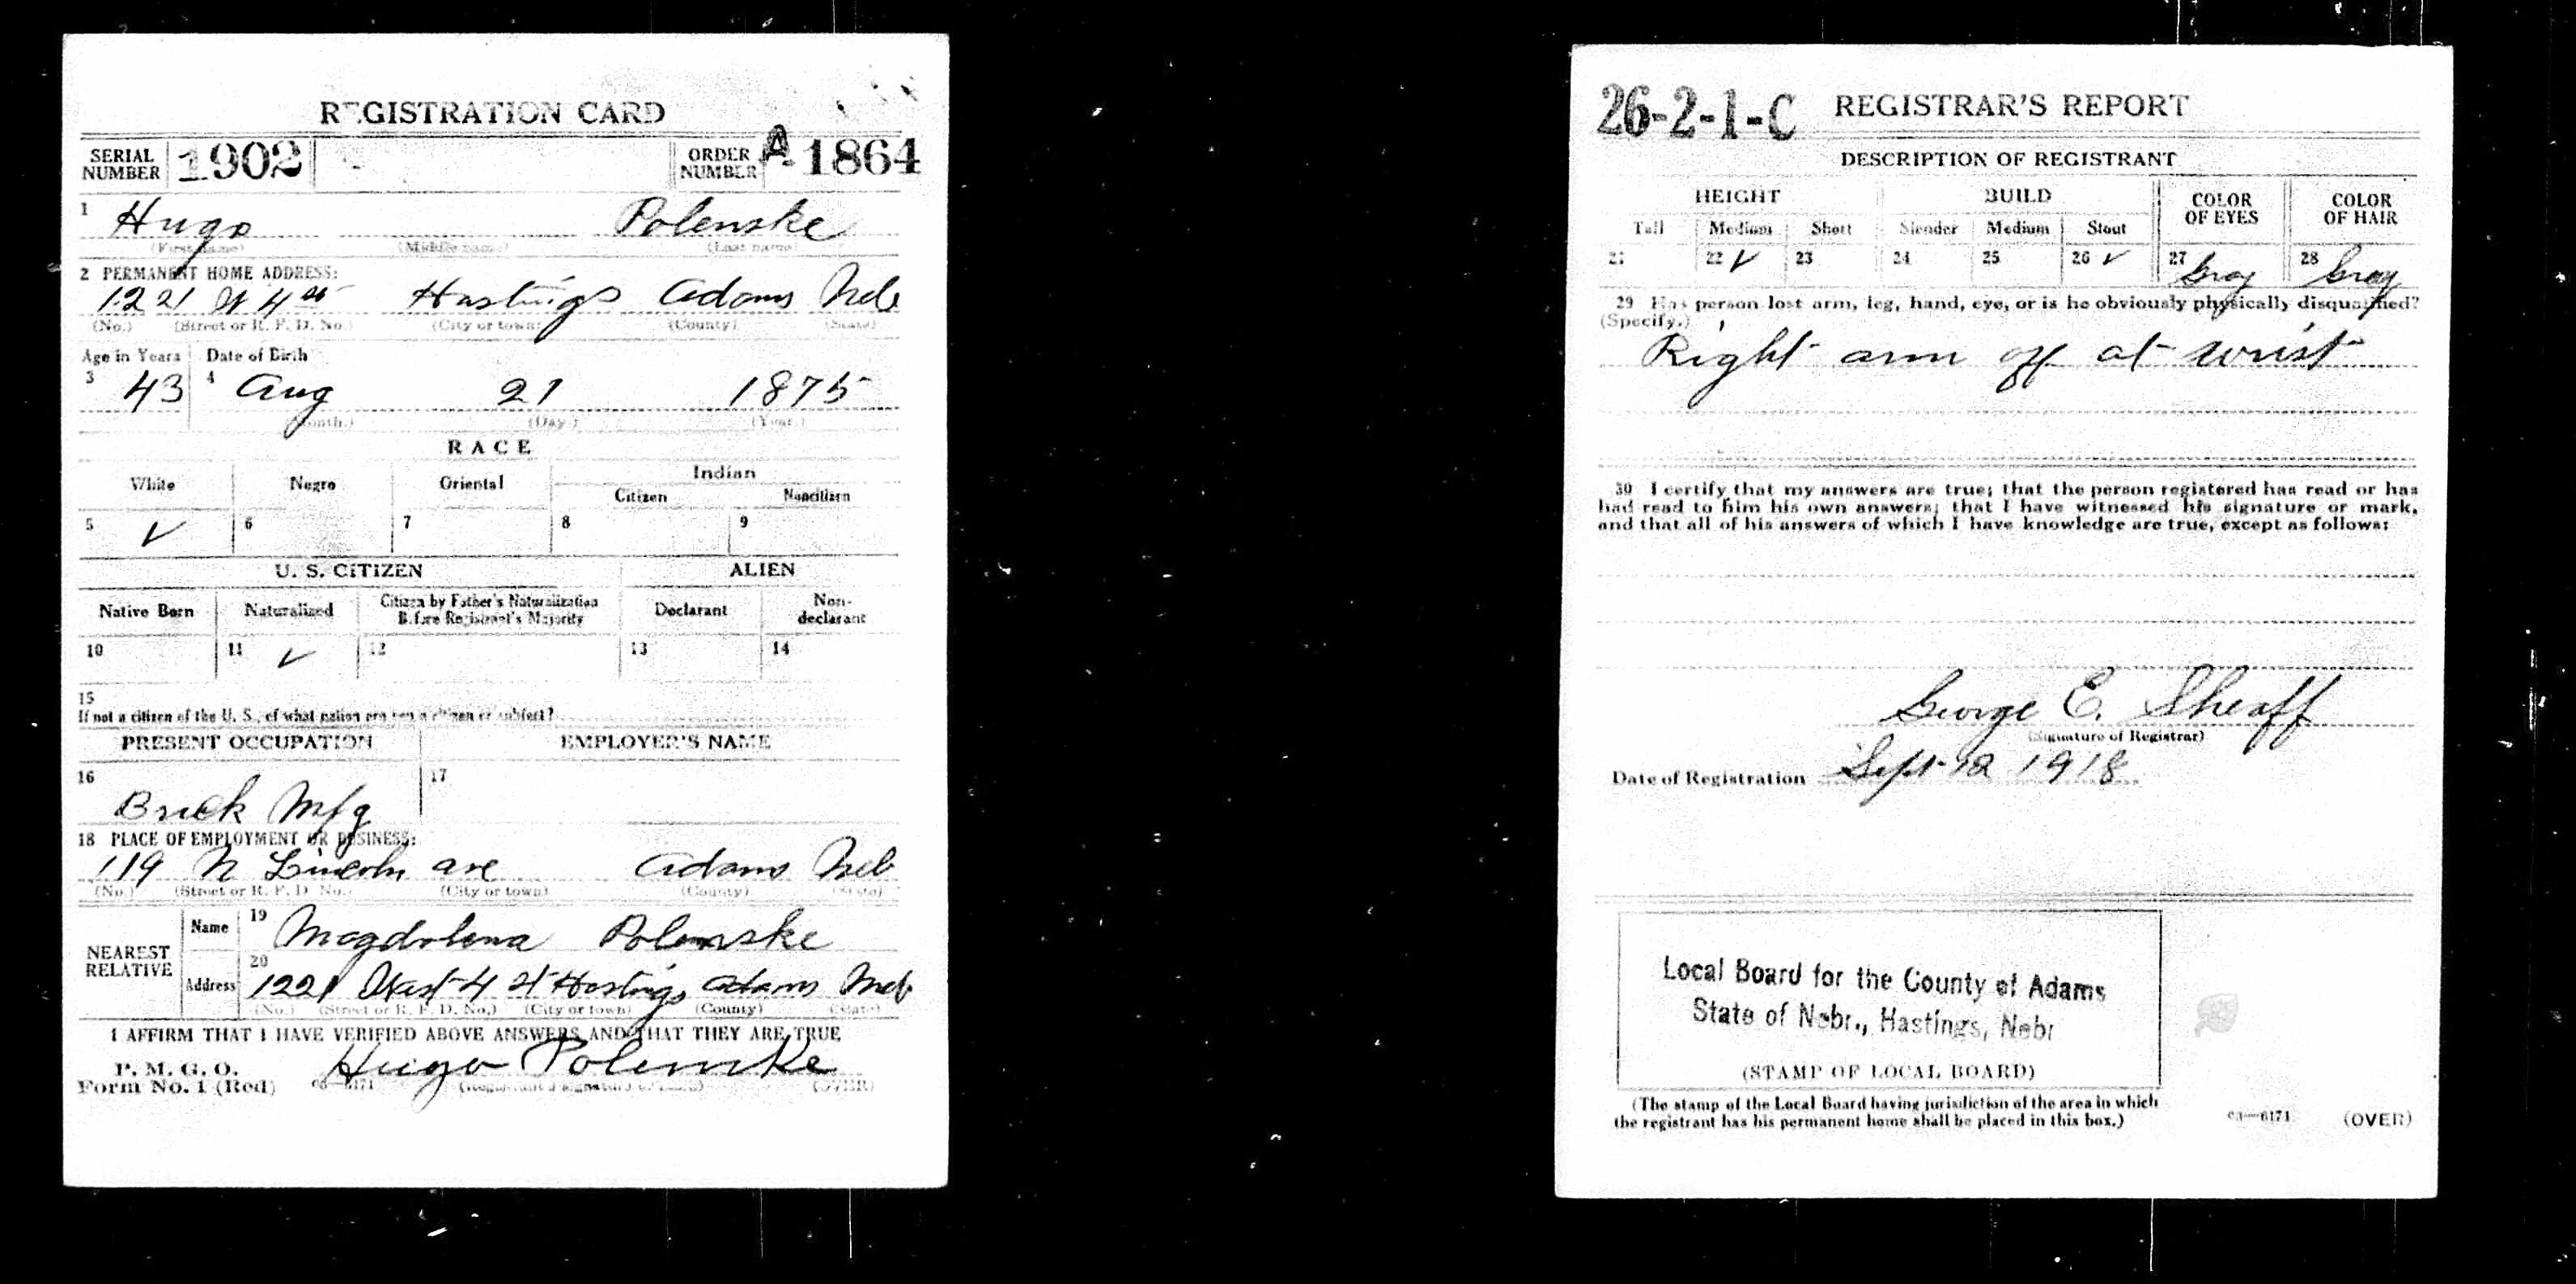 REGISTRATION CARD
SERIAL NUMBER 1902 ORDER NUMBER A 1864
1 Hugo Polenske
(First name) (Middle name) (Last name)
2 PERMANENT HOME ADDRESS:
1221 W 4th Hastings Adams Neb
(No.) (Street or R. F. D. No.) (City or town) (County) (State)
Age in Years Date of Birth
3 43 4 Aug 21 1875
(Month.) (Day.) (Year.)
RACE
White Negro Oriental Indian
Citizen Noncitizen
5 ✓ 6 7 8 9
U. S. CITIZEN ALIEN
Native Born Naturalized Citizen by Father's Naturalization Before Registrant's Majority Declarant Non-declarant
10 11 ✓ 12 13 14
15
If not a citizen of the U. S., of what nation are you a citizen or subject?
PRESENT OCCUPATION EMPLOYER'S NAME
16 Brick Mfg 17
18 PLACE OF EMPLOYMENT OR BUSINESS:
119 N Lincoln ave Adams Neb
(No.) (Street or R. F. D. No.) (City or town) (County) (State)
NEAREST RELATIVE
Name 19 Magdalena Polenske
Address 20 1221 West 4 st Hastings Adams Neb
(No.) (Street or R. F. D. No.) (City or town) (County) (State)
I AFFIRM THAT I HAVE VERIFIED ABOVE ANSWERS AND THAT THEY ARE TRUE
P. M. G. O.
Form No. 1 (Red) 03—6171 Hugo Polenske
(Registrant's signature or mark) (OVER)
26-2-1-C REGISTRAR'S REPORT
DESCRIPTION OF REGISTRANT
HEIGHT BUILD COLOR OF EYES COLOR OF HAIR
Tall Medium Short Slender Medium Stout
21 22 ✓ 23 24 25 26 ✓ 27 Gray 28 Gray
29 Has person lost arm, leg, hand, eye, or is he obviously physically disqualified?
(Specify.)
Right arm off at wrist
30 I certify that my answers are true; that the person registered has read or has
had read to him his own answers; that I have witnessed his signature or mark,
and that all of his answers of which I have knowledge are true, except as follows:
George E. Sheaff
(Signature of Registrar)
Date of Registration Sept 12 1918
Local Board for the County of Adams
State of Nebr., Hastings, Nebr
(STAMP OF LOCAL BOARD)
(The stamp of the Local Board having jurisdiction of the area in which
the registrant has his permanent home shall be placed in this box.)
03—6171 (OVER)